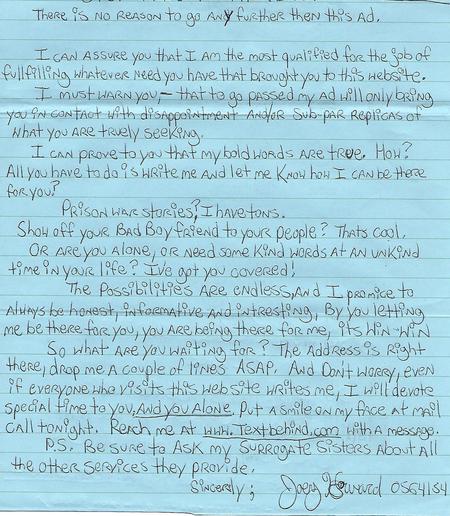 There is no reason to go any further then this ad.
I can assure you that I am the most qualified for the job of
fullfilling whatever need you have that brought you to this website.
I must warn you, - that to go passed my ad will only bring
you in contact with disappointment and/or sub-par replicas of
what you are truely seeking.
I can prove to you that my bold words are true. How?
All you have to do is write me and let me know how I can be there
for you?
Prison war stories? I have tons.
Show off your Bad Boy friend to your people? Thats cool.
Or are you alone, or need some kind words at an unkind
time in your life? I've got you covered!
The possibilities are endless, and I promice to
always be honest, informative and introsting, By you letting
me be there for you, you are being there for me, its win-win
So what are you waiting for? The address is right
there, drop me a couple of lines ASAP. And Don't worry, even
if everyone who visits this website writes me, I will devote
special time to you, and you alone. Put a smile on my face at mail
call tonight. Reach me at www.Textbehind.com with a message.
P.S. Be sure to ask my surrogate sisters about all
the other services they provide.
Sincerly; Joey Howard 0564154